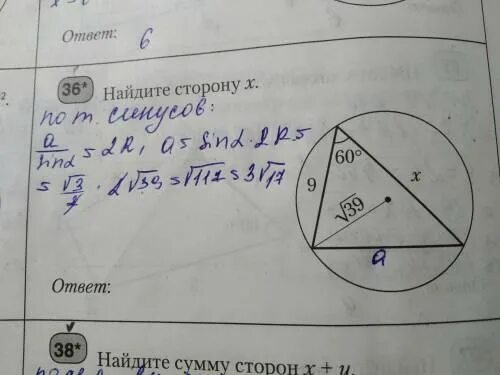 Ответ: 6
36* Найдите сторону x.
по т. синусов:
a/sinα = 2R, a = sinα · 2R =
= √3/2 · 2√39 = √117 = 3√17
60°
9
x
√39
a
Ответ:
38* Найдите сумму сторон x + y.